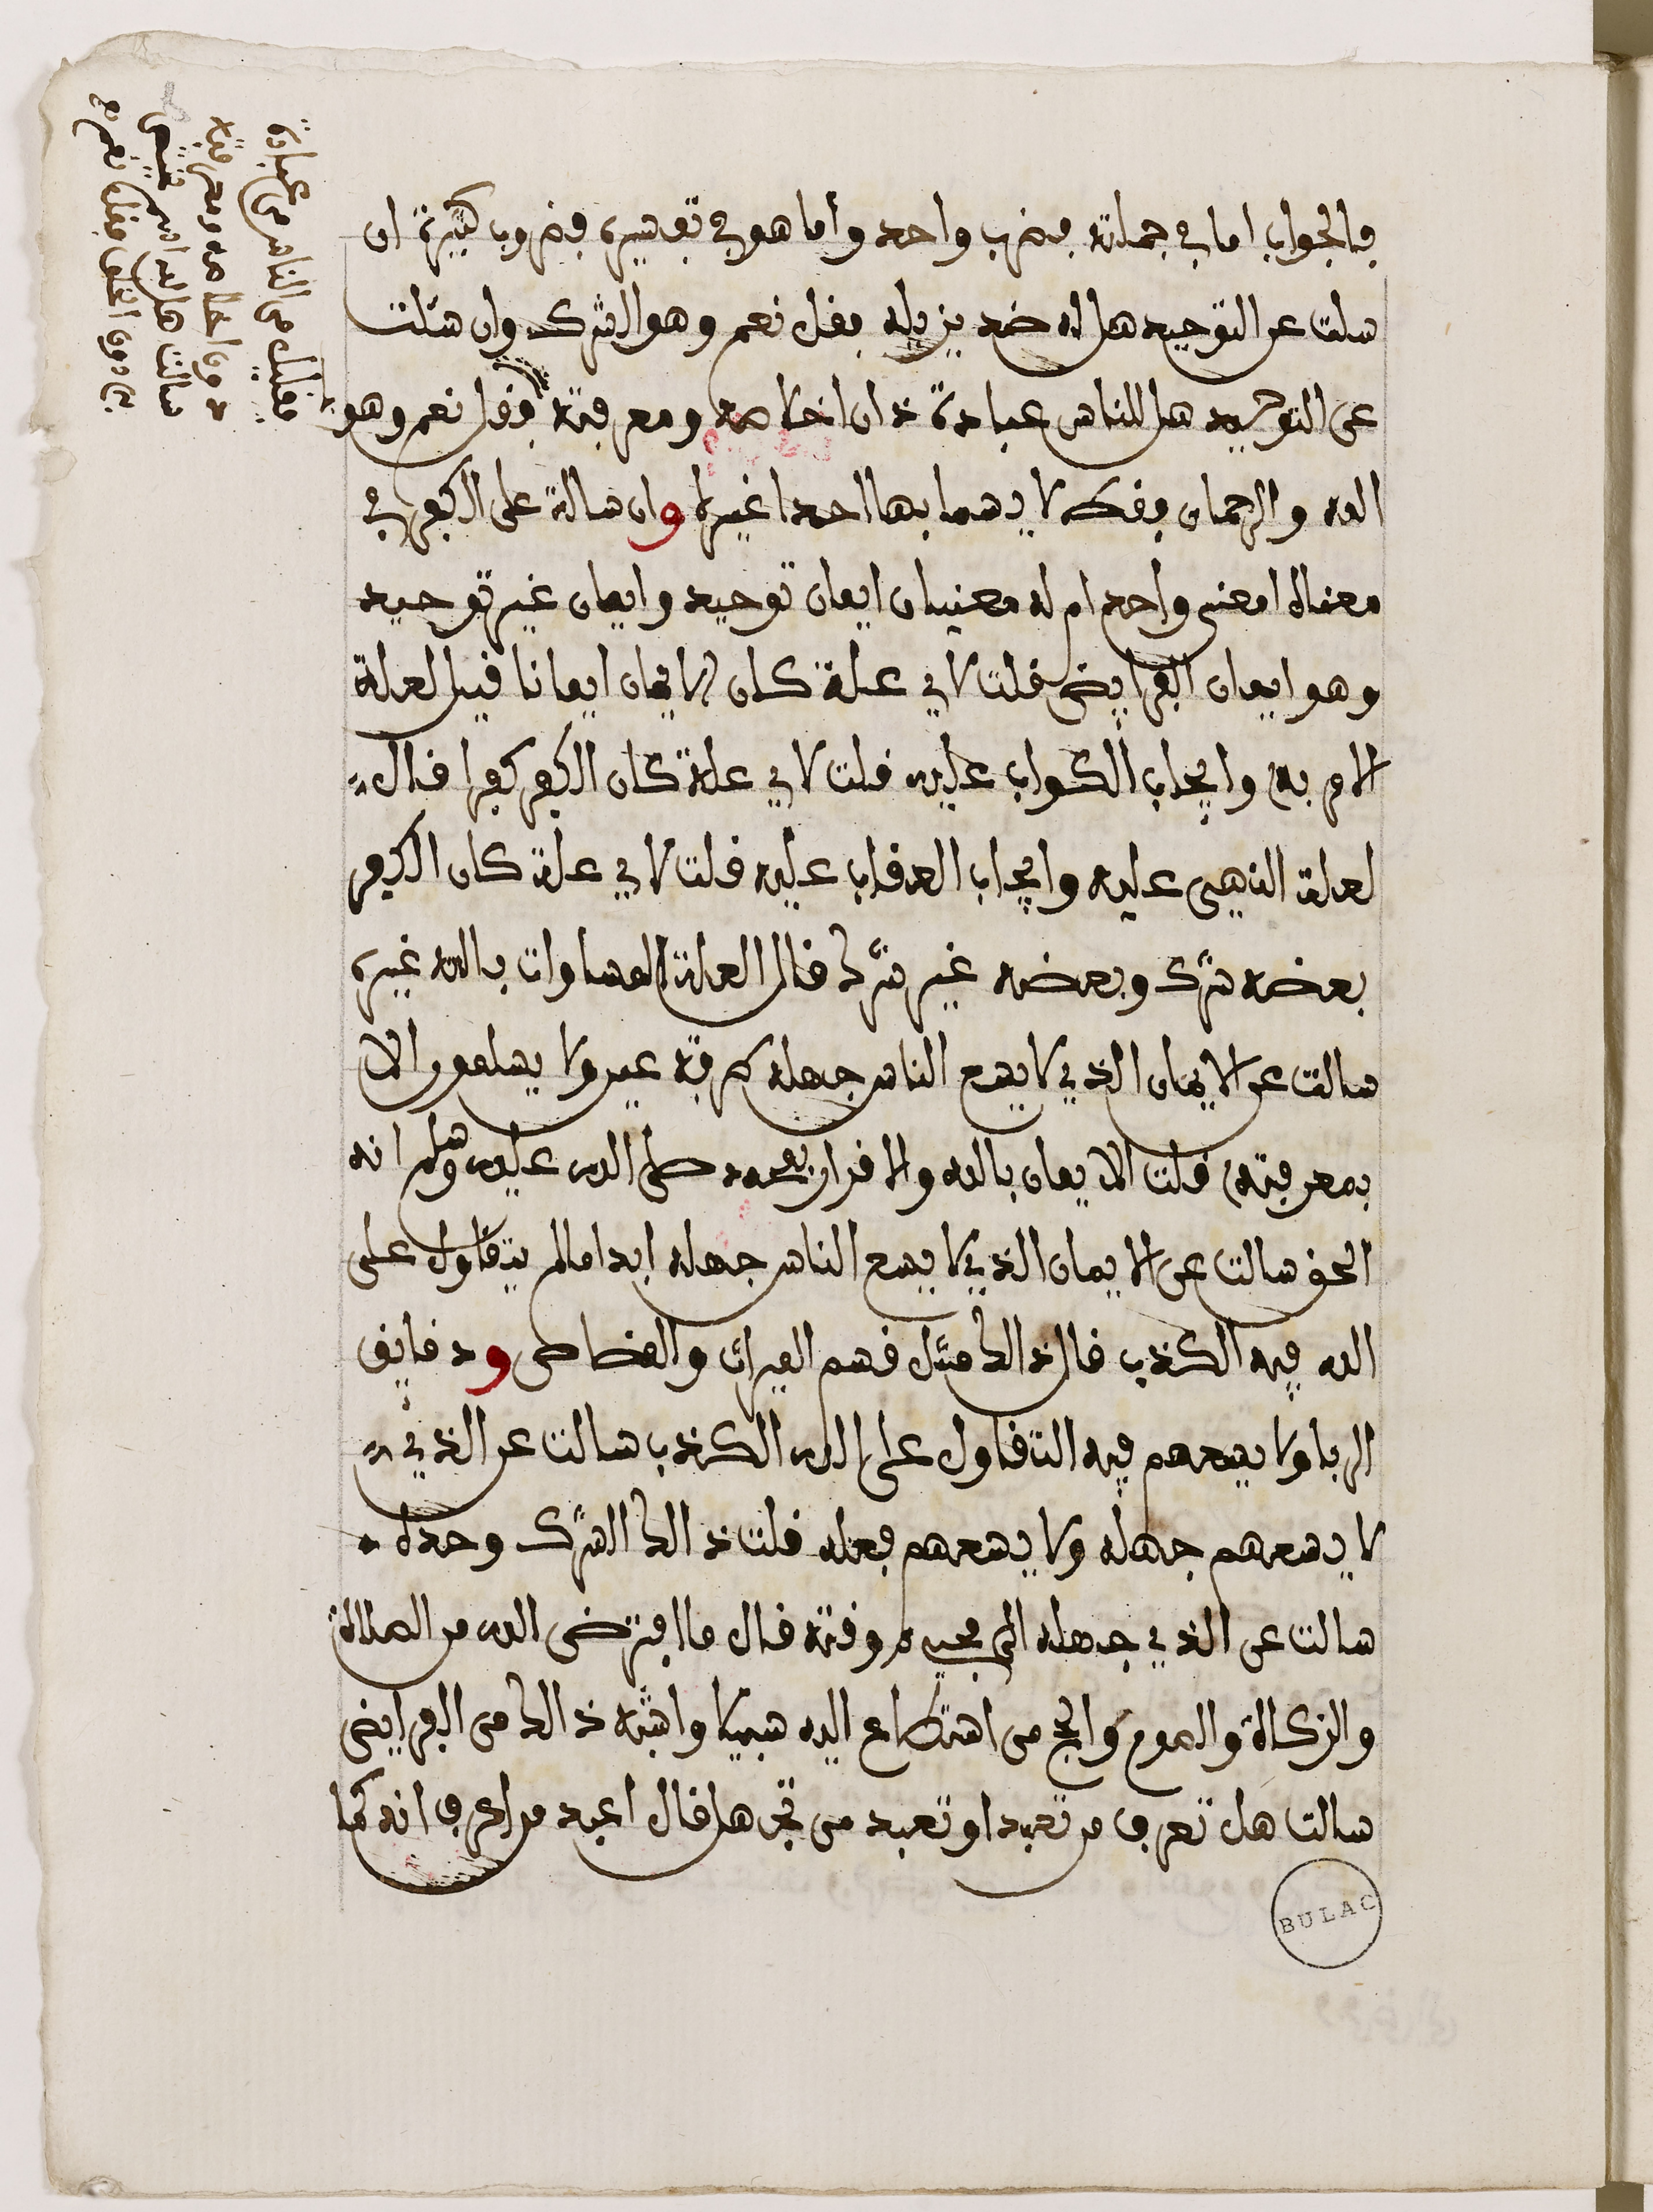 فالجواب اما في جملته فضرب واحد وأما هو في تفسيره فضروب كثيرة ان
سلت عن التوحيد هل له ضد يزيله فقل نعم وهو الشرك وان سئلت
عن التوحيد هل للناس عبادة دون اخلاصه ومعرفته فقل نعم وهو
الله والرحمان فقط لا يسما بها احدا غيره وان سالت على الكفر في
معناه امعنى واحد ام له معنيان ايمان توحيد وايمان غير توحيد
وهو ايمان الفرايض قلت لاي علة كان الايمان ايمانا قيل لعلة
الامر به وايجاب الثواب عليه قلت لاي علة كان الكفر كفرا قال
لعلة النهي عليه وايجاب العقاب عليه قلت لاي علة كان الكفر
بعضه شرك وبعضه غير شرك قال العلة المساوات بالله غيره
سالت عن الايمان الذي لا يسع الناس جهله طرفة عين ولا يسلمون الا
بمعرفته قلت الايمان بالله والاقرار بمحمد صلى الله عليه وسلم انه
الحق سالت عن الايمان الذي لا يسع الناس جهله ابدا مالم يتقاول على
الله فيه الكذب قال ذالك مثل قسم الميراث والقصاص ودقايق
الربا ولا يسعهم فيه التقاول على الله الكذب سالت عن الذي
لا يسعهم جهله ولا يسعهم فعله قلت ذالك الشرك وحده
سالت عن الذي جهله الى مجيء وقته قال ما افترض الله من الصلاة
والزكاة والصوم والحج من استطاع اليه سبيلا واشبه ذالك من الفرايض
سالت هل تعرف من تعبد او تعبد من تجهل قال اعبد من اعرف انه كما
فقيل من الناس من عبادة
دون اخلاصه ومعرفته
سالت هل لله اسم
دون الخلق فقل نعم
BULAC